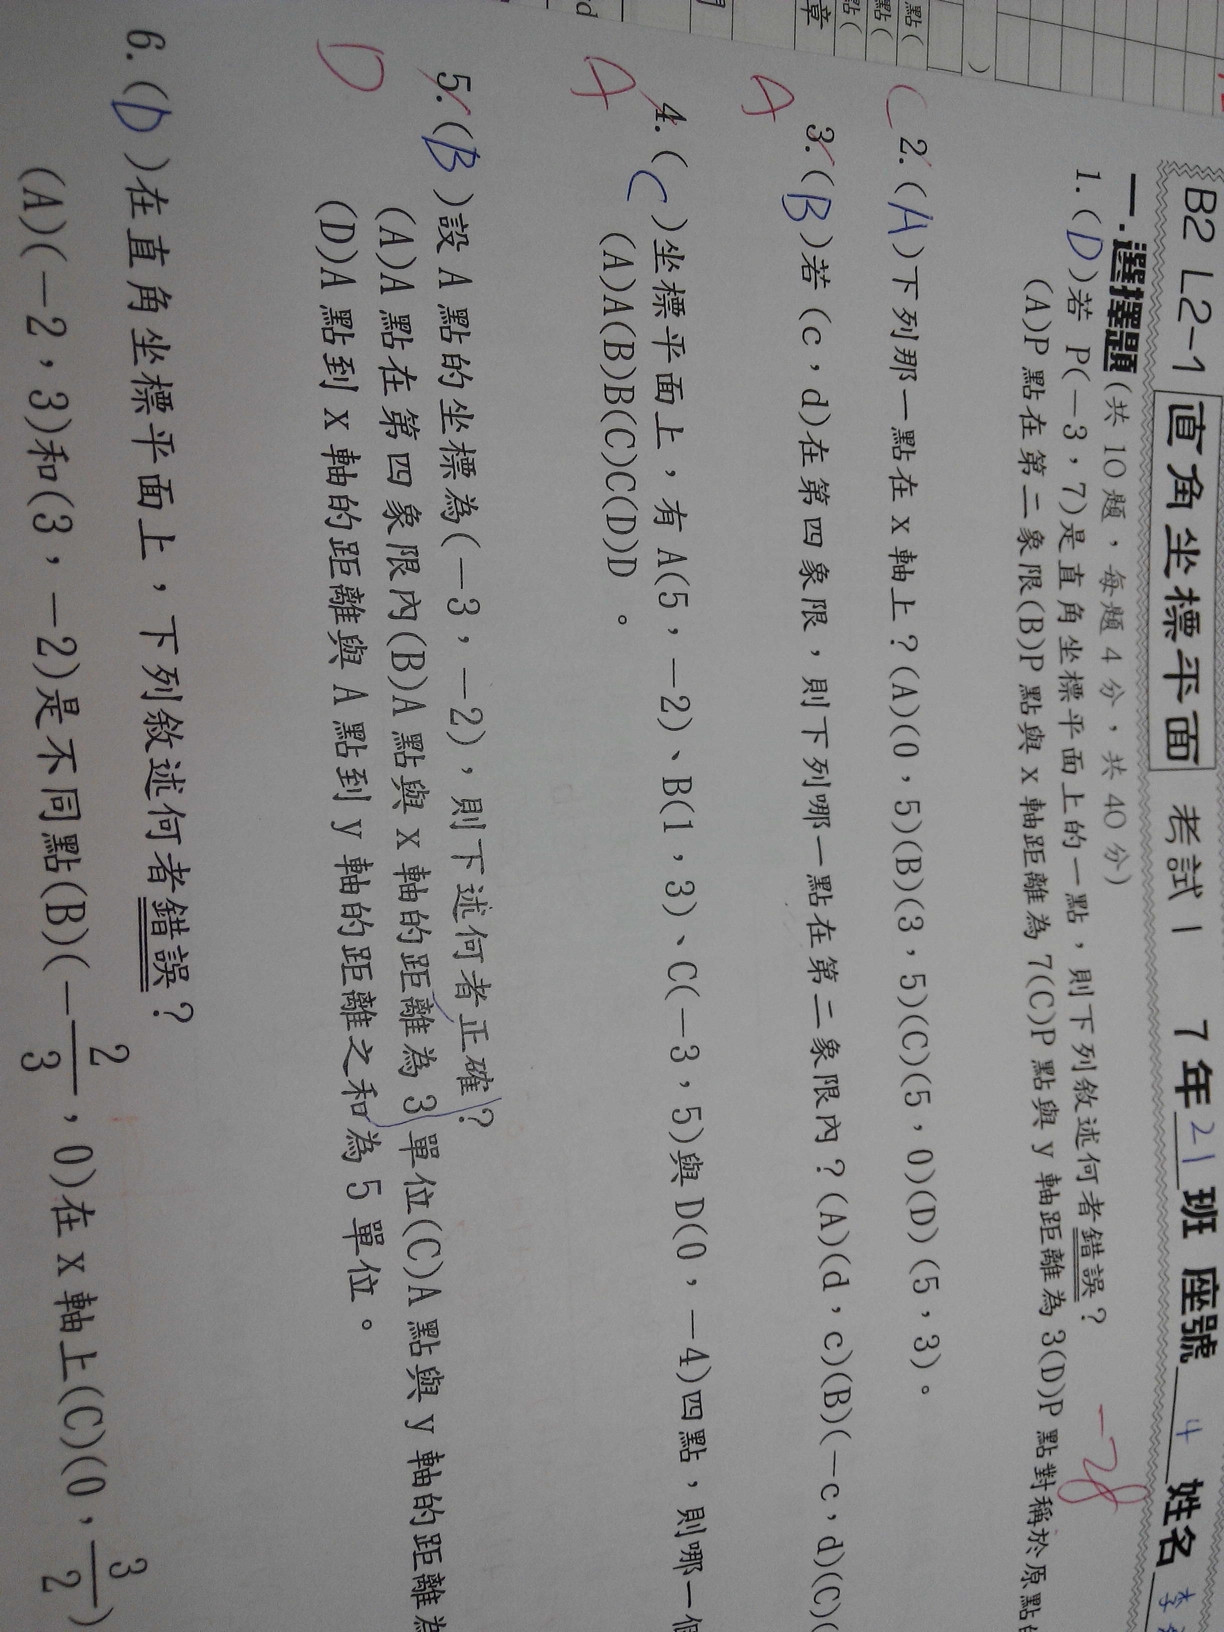 B2 L2-1 直角坐標平面 考試 1 7 年 21 班 座號 4 姓名 李
一.選擇題(共 10 題，每題 4 分，共 40 分)
-28
1.(D)若 P(－3，7)是直角坐標平面上的一點，則下列敘述何者錯誤？
(A)P 點在第二象限(B)P 點與 x 軸距離為 7(C)P 點與 y 軸距離為 3(D)P 點對稱於原點的
C
2.(A)下列那一點在 x 軸上？(A)(0，5)(B)(3，5)(C)(5，0)(D)(5，3)。
A
3.(B)若(c，d)在第四象限，則下列哪一點在第二象限內？(A)(d，c)(B)(－c，d)(C)(
4.(C)坐標平面上，有 A(5，－2)、B(1，3)、C(－3，5)與 D(0，－4)四點，則哪一個
A
(A)A(B)B(C)C(D)D 。
5.(B)設 A 點的坐標為(－3，－2)，則下述何者正確？
(A)A 點在第四象限內(B)A 點與 x 軸的距離為 3 單位(C)A 點與 y 軸的距離為
D
(D)A 點到 x 軸的距離與 A 點到 y 軸的距離之和為 5 單位。
6.(D)在直角坐標平面上，下列敘述何者錯誤？
(A)(－2，3)和(3，－2)是不同點(B)(－2/3，0)在 x 軸上(C)(0，3/2)